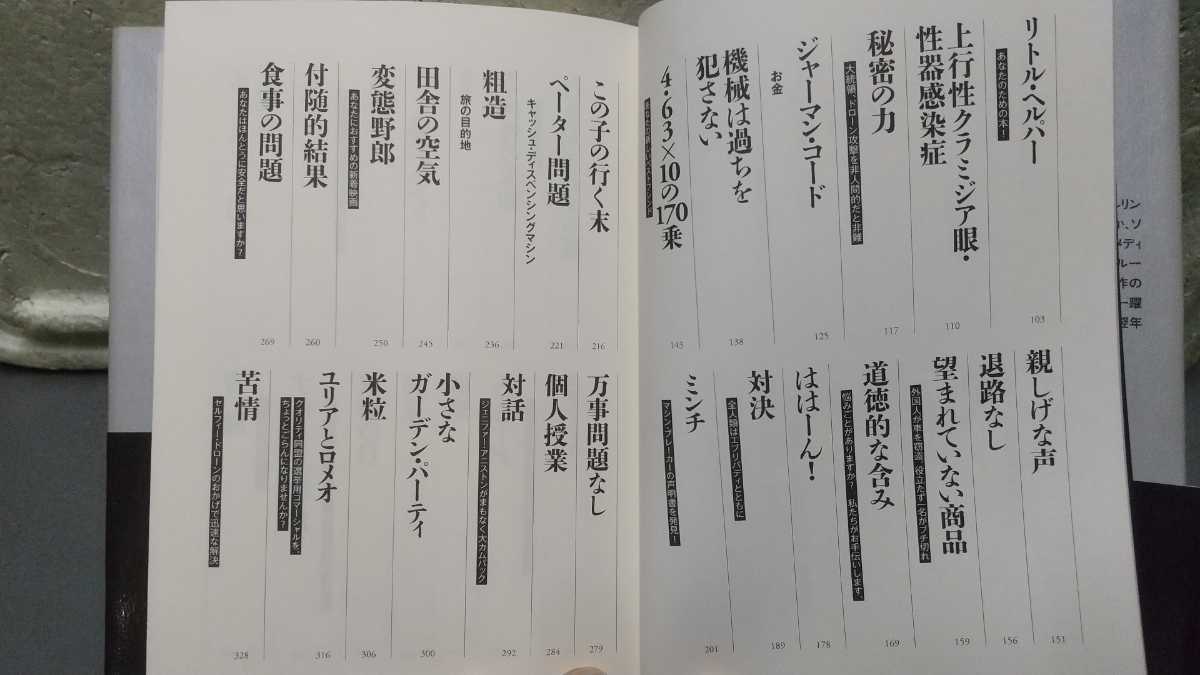 リトル・ヘルパー
あなたのための本！
103
上行性クラミジア眼・
性器感染症
110
秘密の力
大統領、ドローン攻撃を非人間的だと非難
117
ジャーマン・コード
125
お金
機械は過ちを
犯さない
138
4・63×10の170乗
145
親しげな声
151
退路なし
156
望まれていない商品
外国人が車を窃盗、役立たず一名がブチ切れ
159
道徳的な含み
悩みごとがありますか？ 私たちがお手伝いします。
169
ははーん！
178
対決
全人類はエブリバディとともに
189
ミンチ
マシン・ブレーカーの声明書を発見！
201
この子の行く末
216
ペーター問題
221
キャッシュ・ディスペンシングマシン
粗造
236
旅の目的地
田舎の空気
245
変態野郎
あなたにおすすめの新着映画
250
付随的結果
260
食事の問題
あなたはほんとうに安全だと思いますか？
269
万事問題なし
279
個人授業
284
対話
ジェニファー・アニストンがまもなく大カムバック
292
小さな
ガーデン・パーティ
300
米粒
306
ユリアとロメオ
クオリティ同盟の選挙用コマーシャルを、
ちょっとごらんになりませんか？
316
苦情
セルフィー・ドローンのおかげで迅速な解決
328
リン
ソ
メディ
ルー
作の
一躍
年